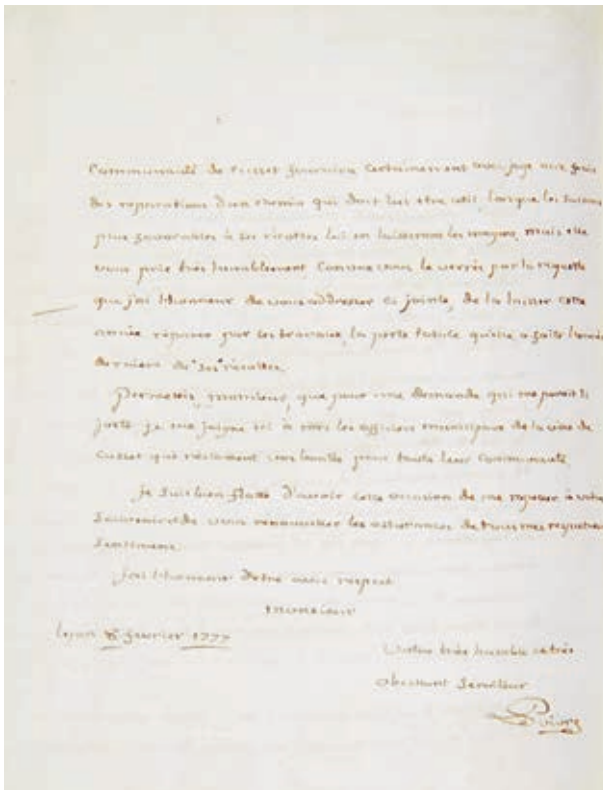 Communauté de Cusset fournira certainement avec joye aux frais
des reparations d'un chemin qui doit lui etre utile, lorsque les saisons
plus favorables à ses récoltes lui en laisseront les moyens, mais elle
vous prie très humblement, comme vous le verrés par la requette
que j'ai l'honneur de vous addresser ci jointe, de la laisser cette
année réparer par ses travaux, la perte totale qu'elle a faite l'année
derniere de ses récoltes.
Permettés, monsieur, que pour une demande qui me paroit si
juste je me joigne ici à mrs les officiers municipaux de la ville de
Cusset qui réclament vos bontés pour toute leur communauté
Je suis bien flatté d'avoir cette occasion de me rappeler à votre
souvenir et de vous renouveller les assurances de tous mes respectueux
sentimens.
J'ai l'honneur d'etre avec respect
monsieur
Lyon 8 fevrier 1777
Votre très humble et très
obeissant serviteur
Poivre